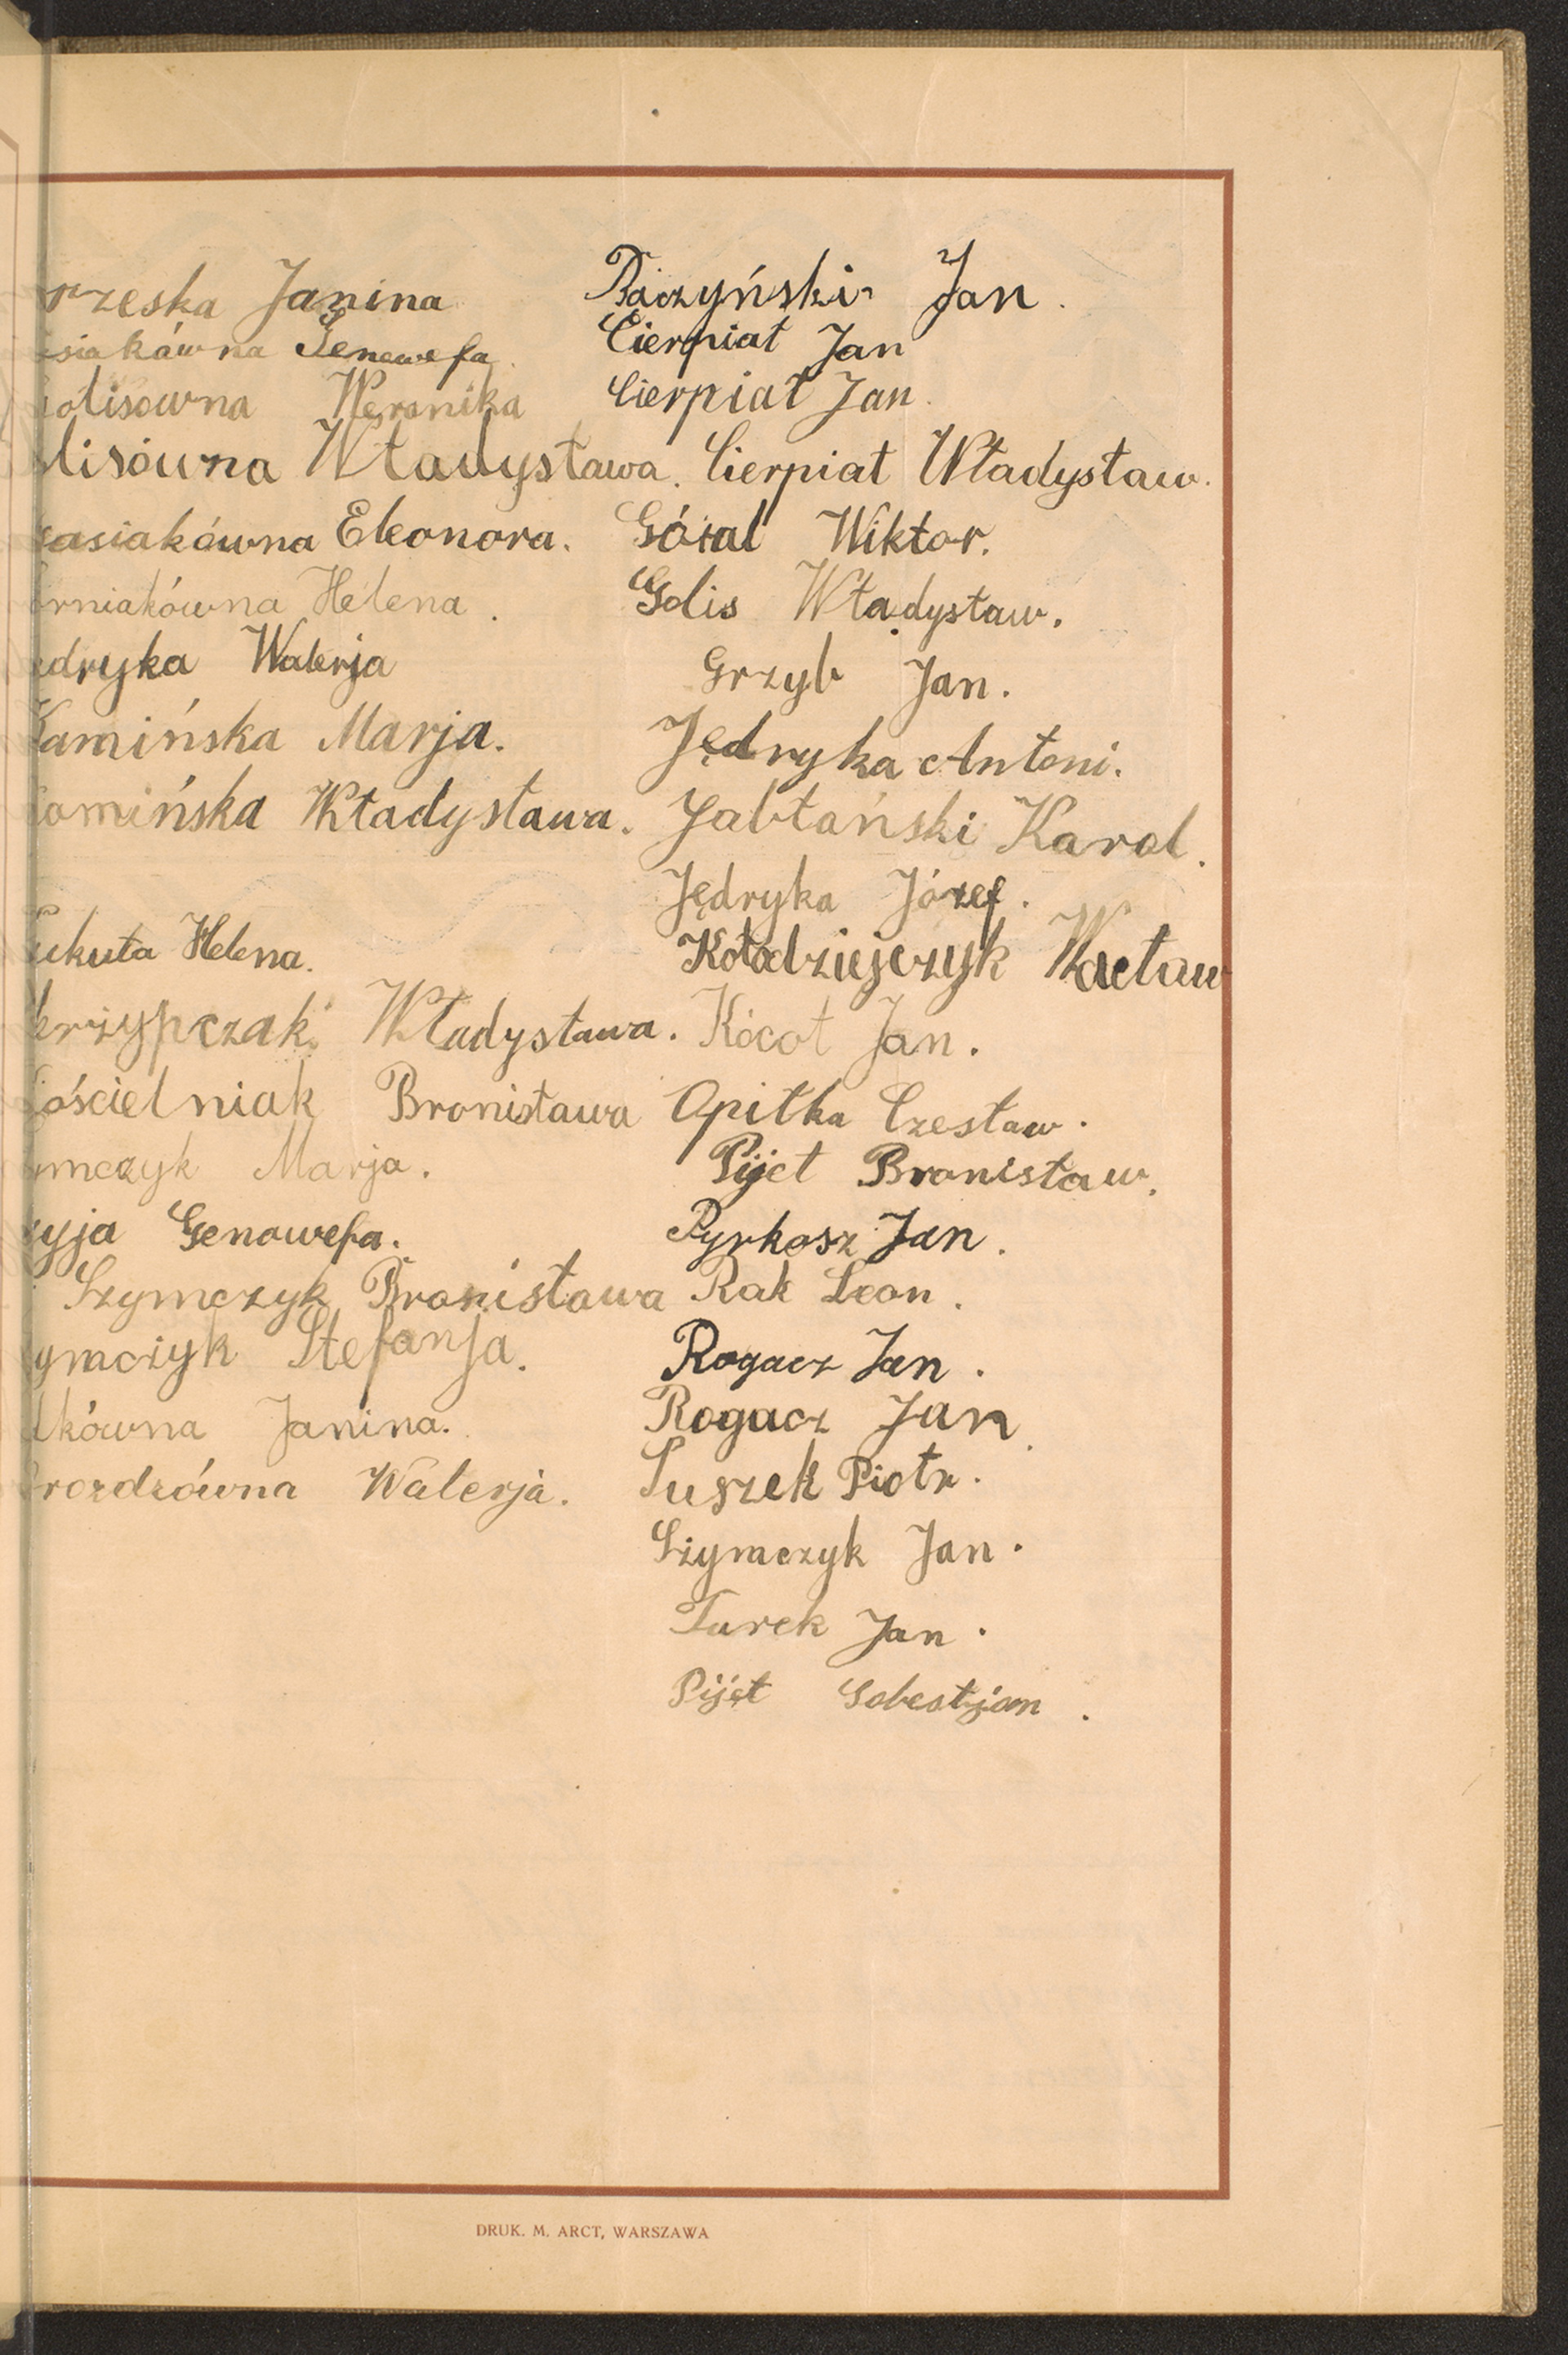 rzeska Janina
siakówna Genowefa.
olisówna Weronika
lisówna Władysława.
asiakówna Eleonora.
rniakówna Helena.
edryka Walerja
Kamińska Marja.
amińska Władysława.
ukuła Helena.
krzypczak Władysława.
ościelniak Bronisława
ymczyk Marja.
yja Genowefa.
Szymczyk Bronisława
ymczyk Stefanja.
kówna Janina.
rozdzówna Walerja.
Baczyński Jan.
Cierpiał Jan
Cierpiał Jan.
Cierpiał Władysław.
Góral Wiktor.
Golis Władysław.
Grzyb Jan.
Jędryka Antoni.
Jabłański Karol.
Jędryka Józef.
Kołodziejczyk Wacław
Kócot Jan.
Opiłka Czesław.
Pijet Bronisław.
Pyrkosz Jan.
Rak Leon.
Rogacz Jan.
Rogacz Jan.
Suszek Piotr.
Szymczyk Jan.
Turek Jan.
Pijet Sobestjan.
DRUK. M. ARCT, WARSZAWA